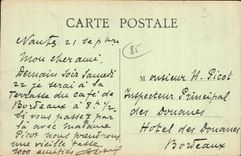 CARTE POSTALE
Nantes 21 Septbre
85
Mon cher ami,
Demain soir Samedi
22 je serai à la
Terrasse du café de
Bordeaux à 8h 1/2
Si vous passez par
là avec madame
Picot nous prendrons
une vieille tasse
1000 amitiés
Monsieur H. Picot
Inspecteur Principal
des Douanes
Hotel des Douanes
Bordeaux